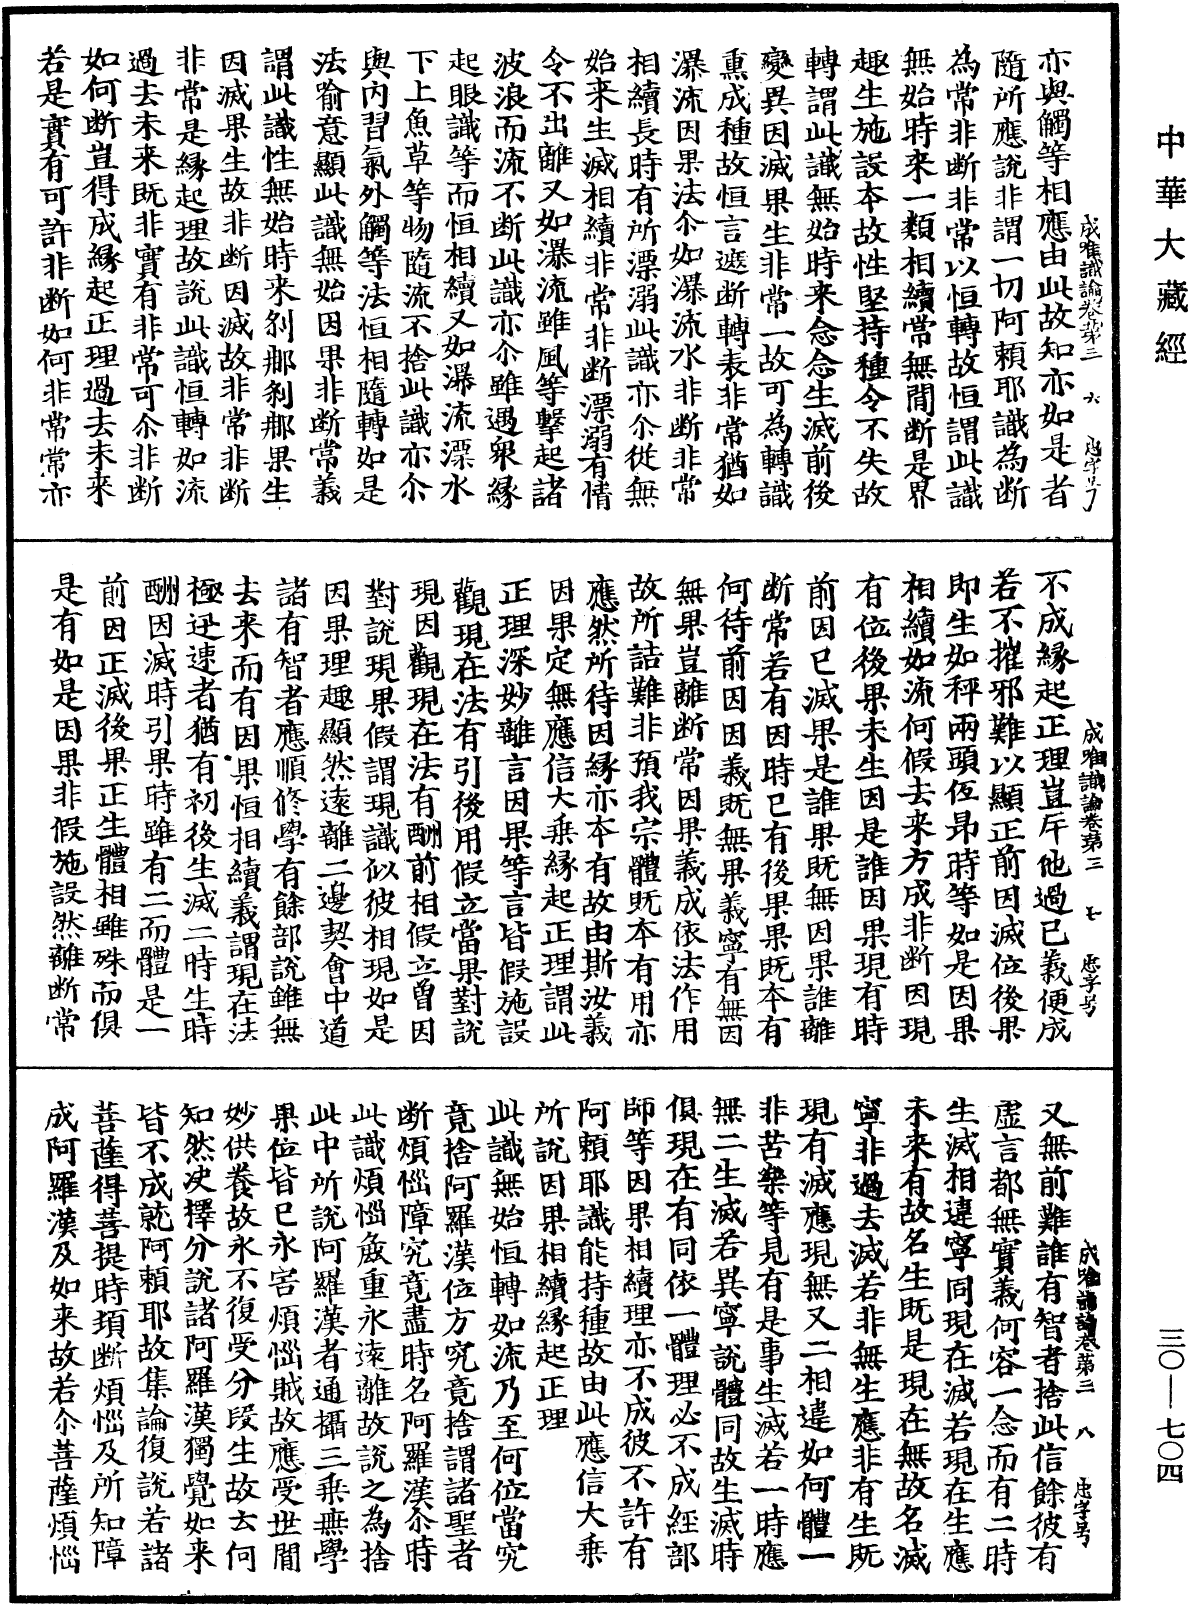 中華大藏經
三〇—七〇四
亦與觸等相應由此故知亦如是者
成唯識論卷第三 六 忠字号
隨所應說非謂一切阿賴耶識為斷
為常非斷非常以恒轉故恒謂此識
無始時来一類相續常無間斷是界
趣生施設本故性堅持種令不失故
轉謂此識無始時来念念生滅前後
變異因滅果生非常一故可為轉識
熏成種故恒言遮斷轉表非常猶如
瀑流因果法尒如瀑流水非斷非常
相續長時有所漂溺此識亦尒從無
始来生滅相續非常非斷漂溺有情
令不出離又如瀑流雖風等擊起諸
波浪而流不斷此識亦尒雖遇衆緣
起眼識等而恒相續又如瀑流漂水
下上魚草等物隨流不捨此識亦尒
與內習氣外觸等法恒相隨轉如是
法喻意顯此識無始因果非斷常義
謂此識性無始時来剎那剎那果生
因滅果生故非斷因滅故非常非斷
非常是緣起理故說此識恒轉如流
過去未来既非實有非常可尒非斷
如何斷豈得成緣起正理過去未来
若是實有可許非斷如何非常常亦
不成緣起正理豈斥他過己義便成
成唯識論卷第三 七 忠字号
若不摧邪難以顯正前因滅位後果
即生如秤兩頭伍昂時等如是因果
相續如流何假去来方成非斷因現
有位後果未生因是誰因果現有時
前因已滅果是誰果既無因果誰離
斷常若有因時已有後果果既本有
何待前因因義既無果義寧有無因
無果豈離斷常因果義成依法作用
故所詰難非預我宗體既本有用亦
應然所待因緣亦本有故由斯汝義
因果定無應信大乗緣起正理謂此
正理深妙離言因果等言皆假施設
觀現在法有引後用假立當果對說
現因觀現在法有酬前相假立曾因
對說現果假謂現識似彼相現如是
因果理趣顯然遠離二邊契會中道
諸有智者應順修學有餘部說雖無
去来而有因果恒相續義謂現在法
極迅速者猶有初後生滅二時生時
酬因滅時引果時雖有二而體是一
前因正滅後果正生體相雖殊而俱
是有如是因果非假施設然離斷常
又無前難誰有智者捨此信餘彼有
成唯識論卷第三 八 忠字号
虛言都無實義何容一念而有二時
生滅相違寧同現在滅若現在生應
未来有故名生既是現在無故名滅
寧非過去滅若非無生應非有生既
現有滅應現無又二相違如何體一
非苦樂等見有是事生滅若一時應
無二生滅若異寧說體同故生滅時
俱現在有同依一體理必不成經部
師等因果相續理亦不成彼不許有
阿賴耶識能持種故由此應信大乗
所說因果相續緣起正理
此識無始恒轉如流乃至何位當究
竟捨阿羅漢位方究竟捨謂諸聖者
斷煩惱障究竟盡時名阿羅漢尒時
此識煩惱麁重永遠離故說之為捨
此中所說阿羅漢者通攝三乗無學
果位皆已永害煩惱賊故應受世間
妙供養故永不復受分段生故云何
知然決擇分說諸阿羅漢獨覺如来
皆不成就阿賴耶故集論復說若諸
菩薩得菩提時頓斷煩惱及所知障
成阿羅漢及如来故若尒菩薩煩惱